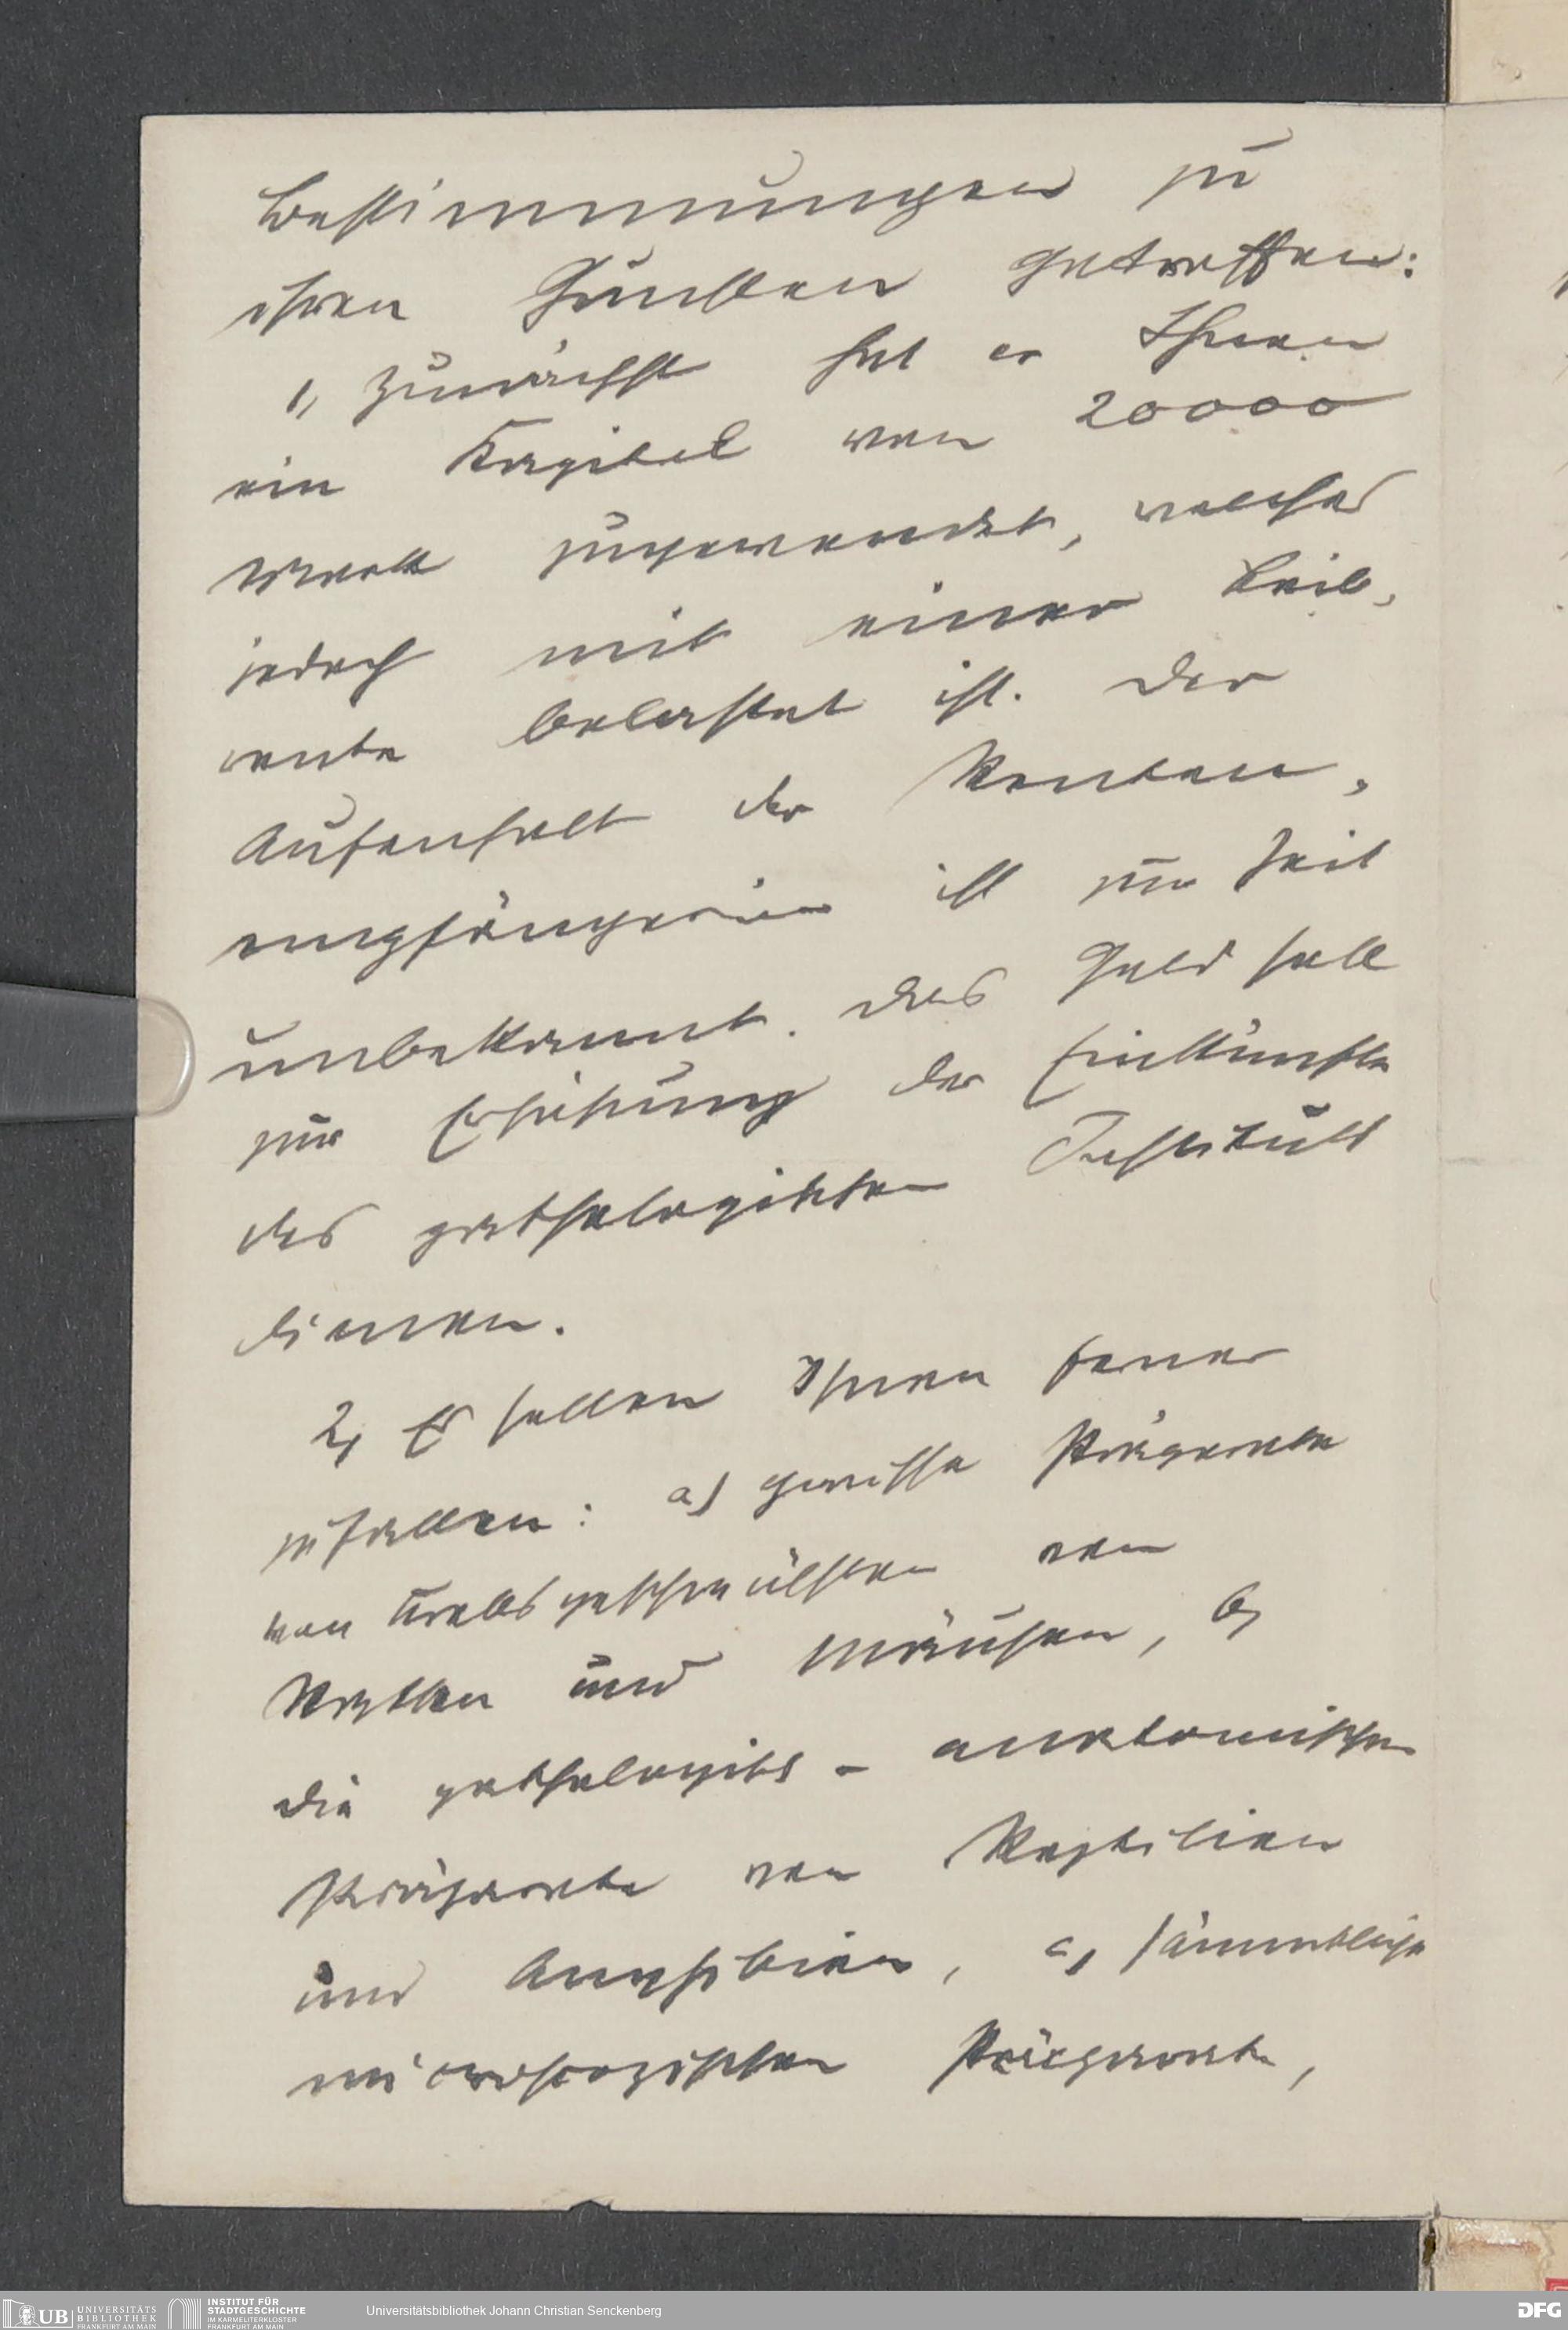 Bestimmungen zu
ihren Gunsten getroffen:
1, Zunächst hat er Ihnen
ein Kapital von 20000
Mark zugewendet, welches
jedoch mit einer Leib-
rente belastet ist. Der
Aufenthalt der Renten-
empfängerin ist zur Zeit
unbekannt. Das Geld soll
zur Erhöhung der Einkünfte
des pathologischen Instituts
dienen.
2, Es sollen Ihnen ferner
zufallen: a) gewisse Präparate
von Krebsgeschwülsten von
Ratten und Mäusen, b,
die pathologisch-anatomischen
Präparate von Reptilien
und Amphibien, c, sämmtliche
microscopischen Präparate,
UB UNIVERSITÄTS
BIBLIOTHEK
FRANKFURT AM MAIN
INSTITUT FÜR
STADTGESCHICHTE
IM KARMELITERKLOSTER
FRANKFURT AM MAIN
Universitätsbibliothek Johann Christian Senckenberg
DFG